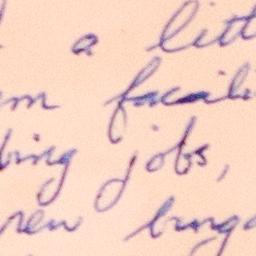 a litt
m facili
bing jobs,
new bunga